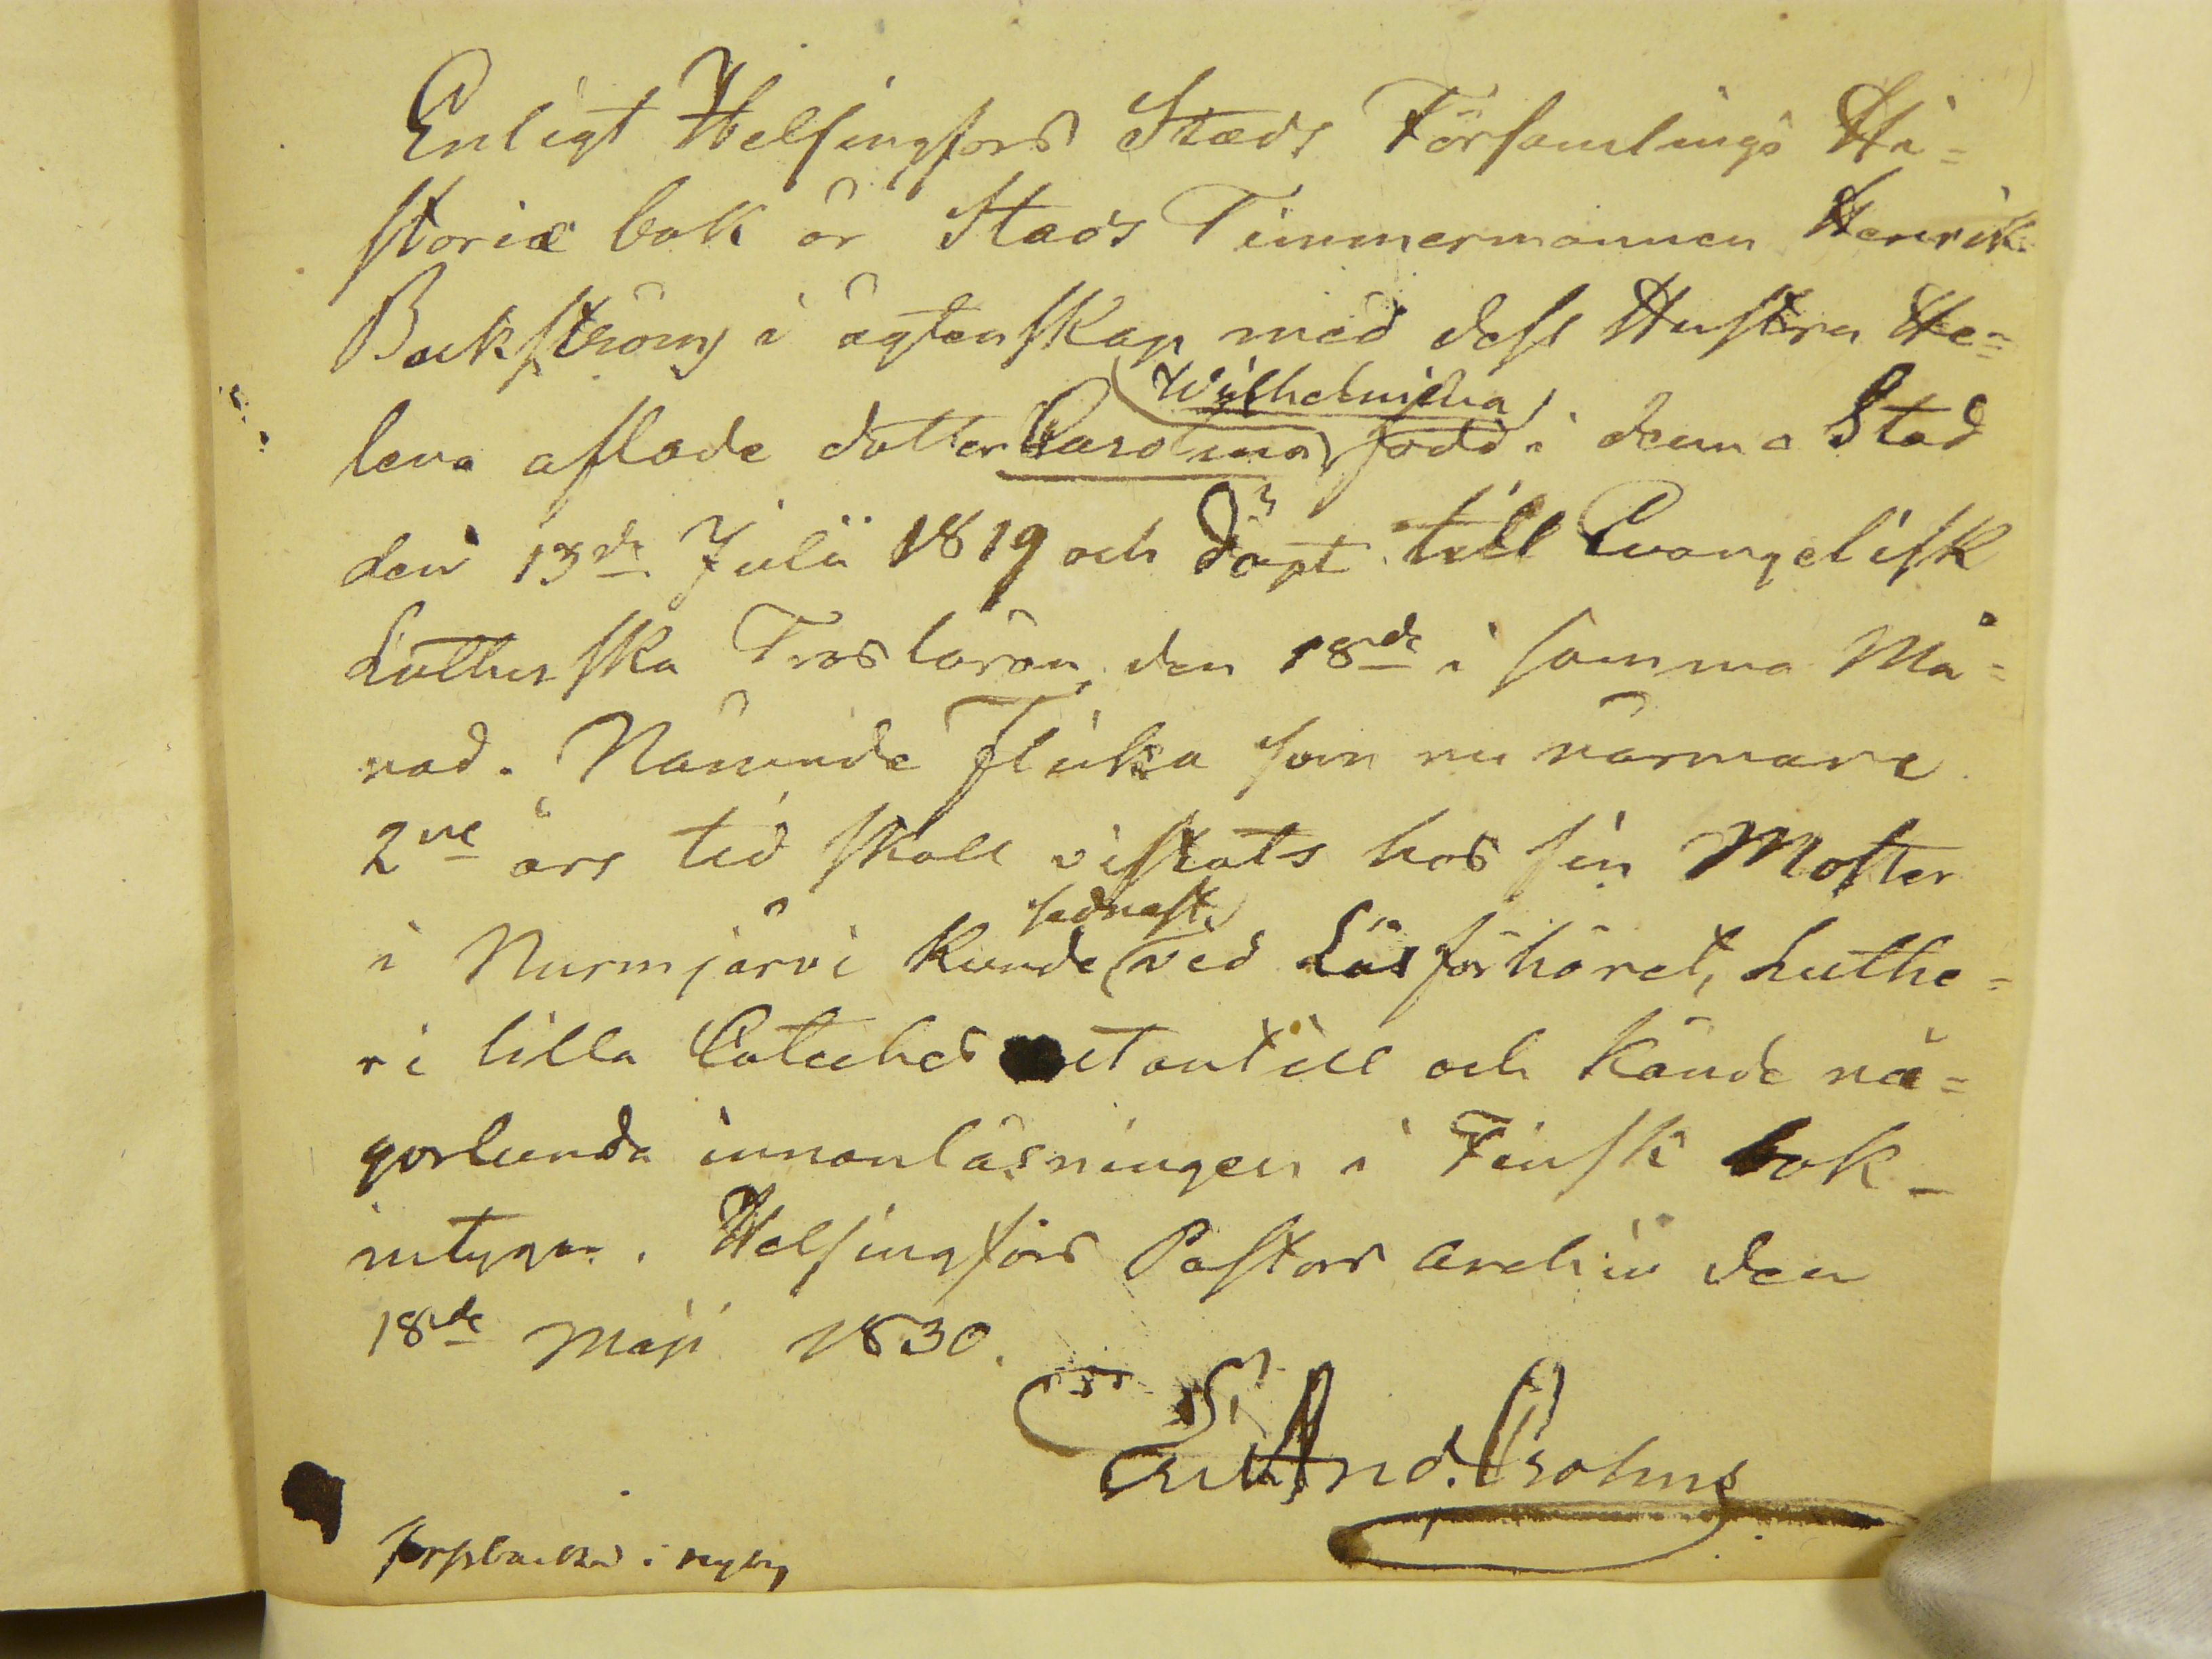 Enligt Helsingfors Stads Församlings Hi=
storiæ bok är Stads Timmermannen Henrik
Backströms i ägtenskap med dess Hustru He=
Wilhelmina
lena aflade dotter Carolina född i denna Stad
den 13de Julii 1819 och döpt till Evangelisk
Lutherska Trosläran den 18de i samma Må=
nad. Nämnde Flicka som nu närmare
2ne års tid skall vistats hos sin Moster
sednast
i Nurmjärvi kunde ved Läsförhöret, Luthe=
ri lilla Cateches utantill och kände nå=
gorlunda innanläsningen i Finsk bok_
intygar. Helsingfors Pastors Archiv den
18de Maji 1830.
And. Crohns
i nyby